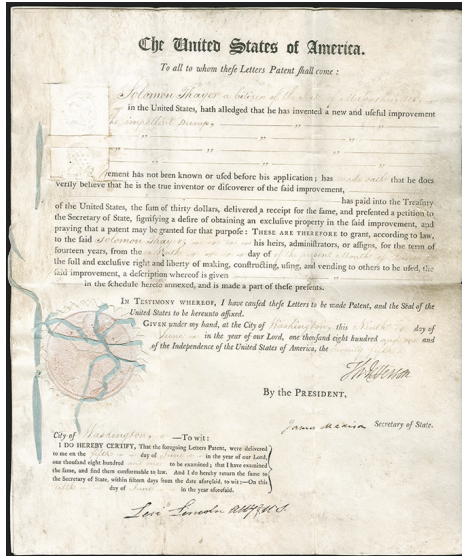 The United States of America.
To all to whom theſe Letters Patent ſhall come :
Solomon Thayer a citizen of the State of
in the United States, hath alledged that he has invented a new and uſeful improvement
" " "
" " "
vement has not been known or uſed before his application; has made oath that he does
verily believe that he is the true inventor or diſcoverer of the ſaid improvement,
has paid into the Treaſury
of the United States, the ſum of thirty dollars, delivered a receipt for the ſame, and preſented a petition to
the Secretary of State, ſignifying a deſire of obtaining an excluſive property in the ſaid improvement, and
praying that a patent may be granted for that purpoſe : THESE ARE THEREFORE to grant, according to law,
to the ſaid Solomon Thayer his heirs, adminiſtrators, or aſſigns, for the term of
fourteen years, from the day of
the full and excluſive right and liberty of making, conſtructing, uſing, and vending to others to be uſed, the
ſaid improvement, a deſcription whereof is given
in the ſchedule hereto annexed, and is made a part of theſe preſents.
IN TESTIMONY WHEREOF, I have cauſed theſe Letters to be made Patent, and the Seal of the
United States to be hereunto affixed.
GIVEN under my hand, at the City of Waſhington, this Ninth day of
June in the year of our Lord, one thouſand eight hundred and one and
of the Independence of the United States of America, the
Th Jefferson
By the PRESIDENT,
James Madison Secretary of State.
City of Waſhington, —TO WIT :
I DO HEREBY CERTIFY, That the foregoing Letters Patent, were delivered
to me on the day of June in the year of our Lord,
one thouſand eight hundred to be examined ; that I have examined
the ſame, and find them conformable to law. And I do hereby return the ſame to
the Secretary of State, within fifteen days from the date aforeſaid, to wit :—On this
day of June in the year aforeſaid.
Levi Lincoln Atty G. U. S